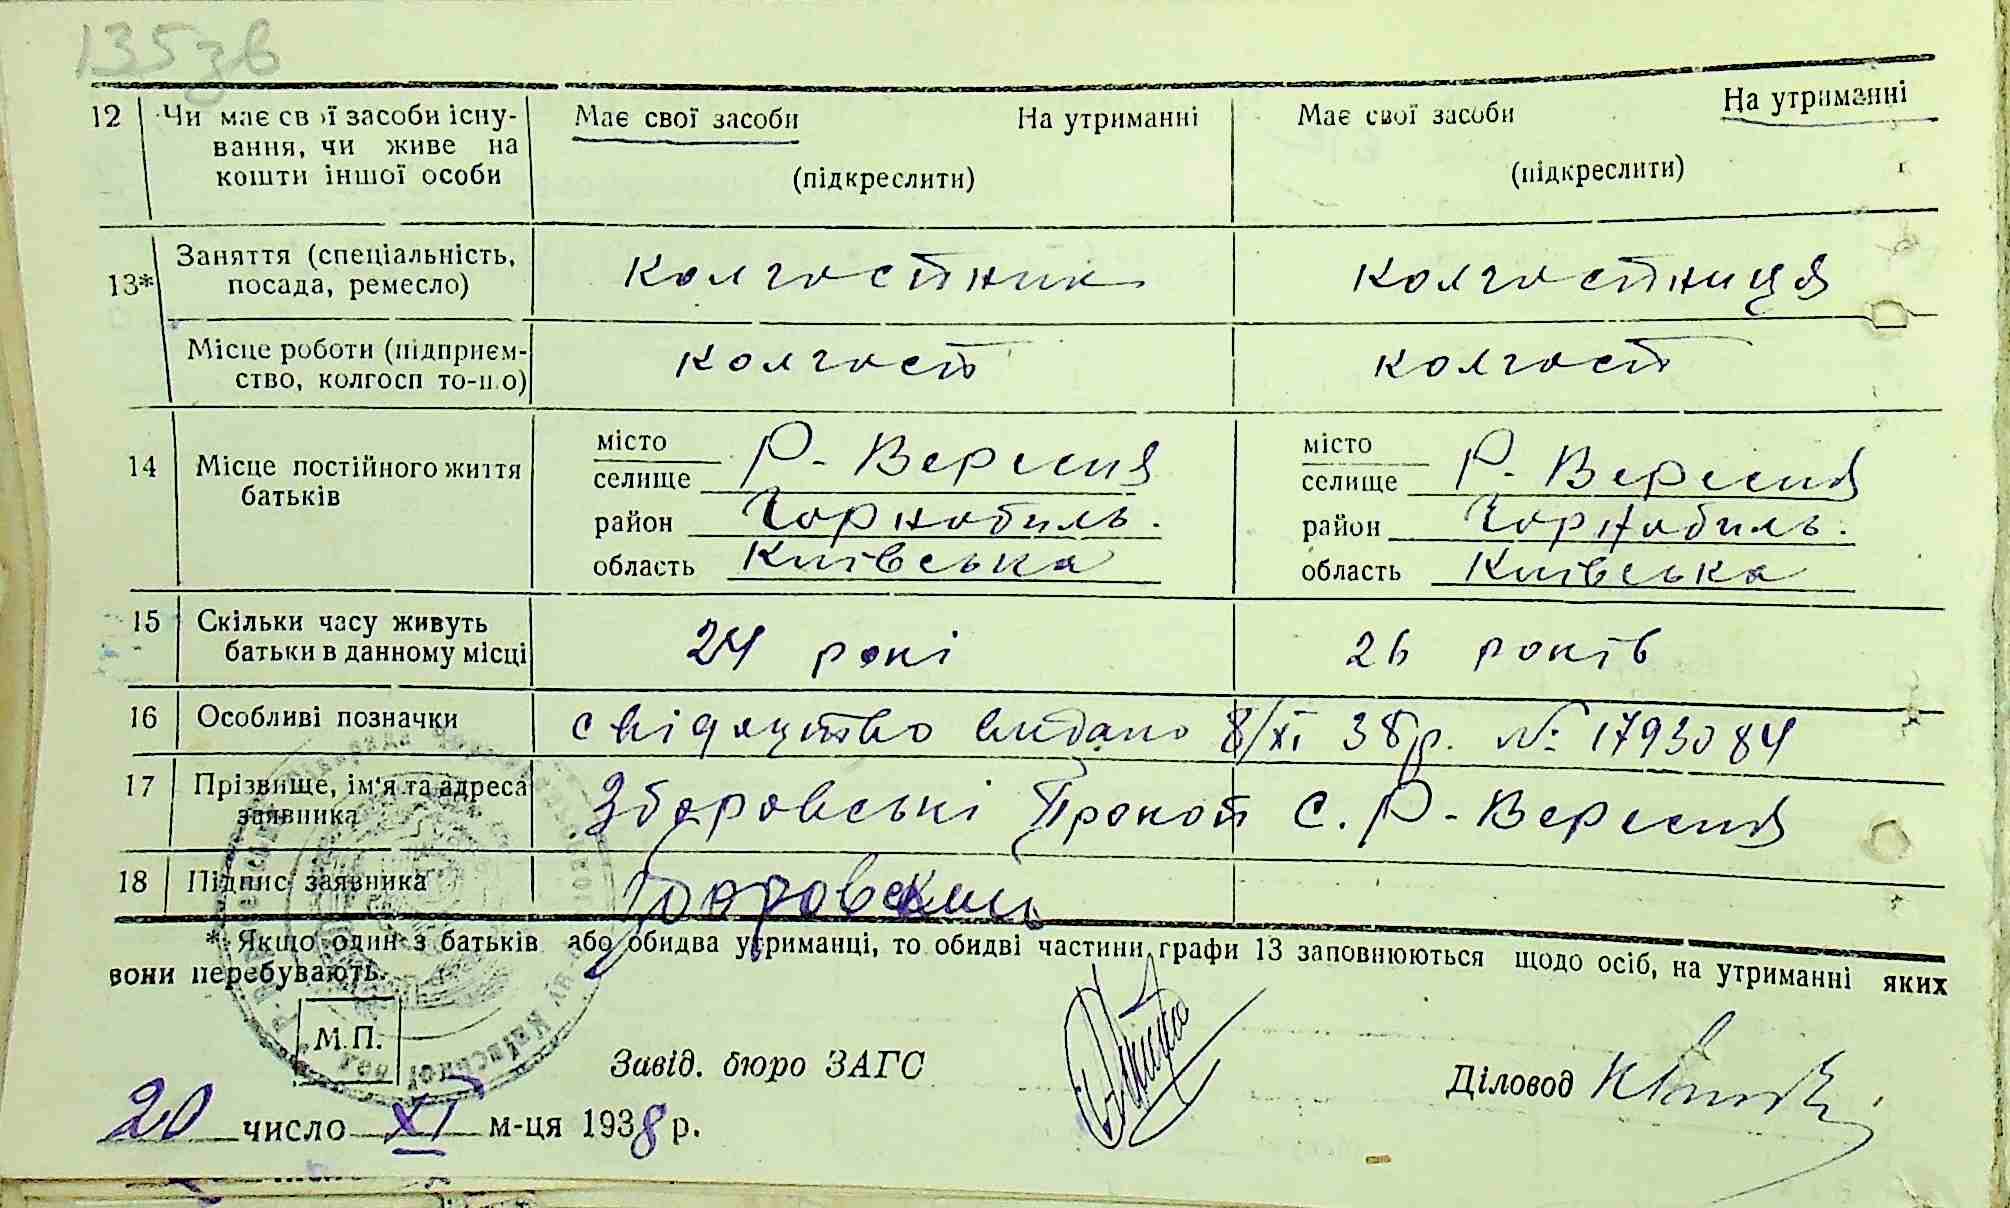 135зв
12 Чи має свої засоби існу- Має свої засоби На утриманні Має свої засоби На утриманні
вання, чи живе на
кошти іншої особи (підкреслити) (підкреслити)
13* Заняття (спеціальність, колгоспник колгоспниця
посада, ремесло)
Місце роботи (підприєм- колгосп колгосп
ство, колгосп то-що)
14 Місце постійного життя батьків
місто місто
селище Р-Вересня селище Р-Вересня
район Чорнобиль. район Чорнобиль.
область Київська область Київська
15 Скільки часу живуть 24 рокі 26 років
батьки в данному місці
16 Особливі позначки свідоцтво видано 8/XI 38р. № 1793084
17 Прізвище, ім'я та адреса Зборовські Прокоп с. Р-Вересня
заявника
18 Підпис заявника Зборовский
* Якщо один з батьків або обидва утриманці, то обидві частини графи 13 заповнюються щодо осіб, на утриманні яких
вони перебувають.
М.П.
Завід. бюро ЗАГС Діловод
20 число XI м-ця 1938 р.